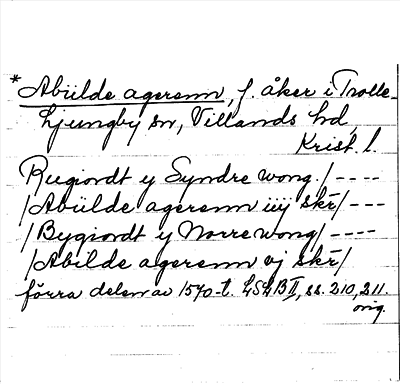 *Abiilde agerenn, f. åker i Trolle-
Ljungby sn, Villands hd,
Krist. l.
Rugiordt y Syndre wong./----
/Abiilde agerenn iiij skr̄/---
/Bygiordt y Norre wong/----
/Abilde agerenn vj skr̄/
förra delen av 1570-t. LSLB II, ss. 210, 211.
orig.